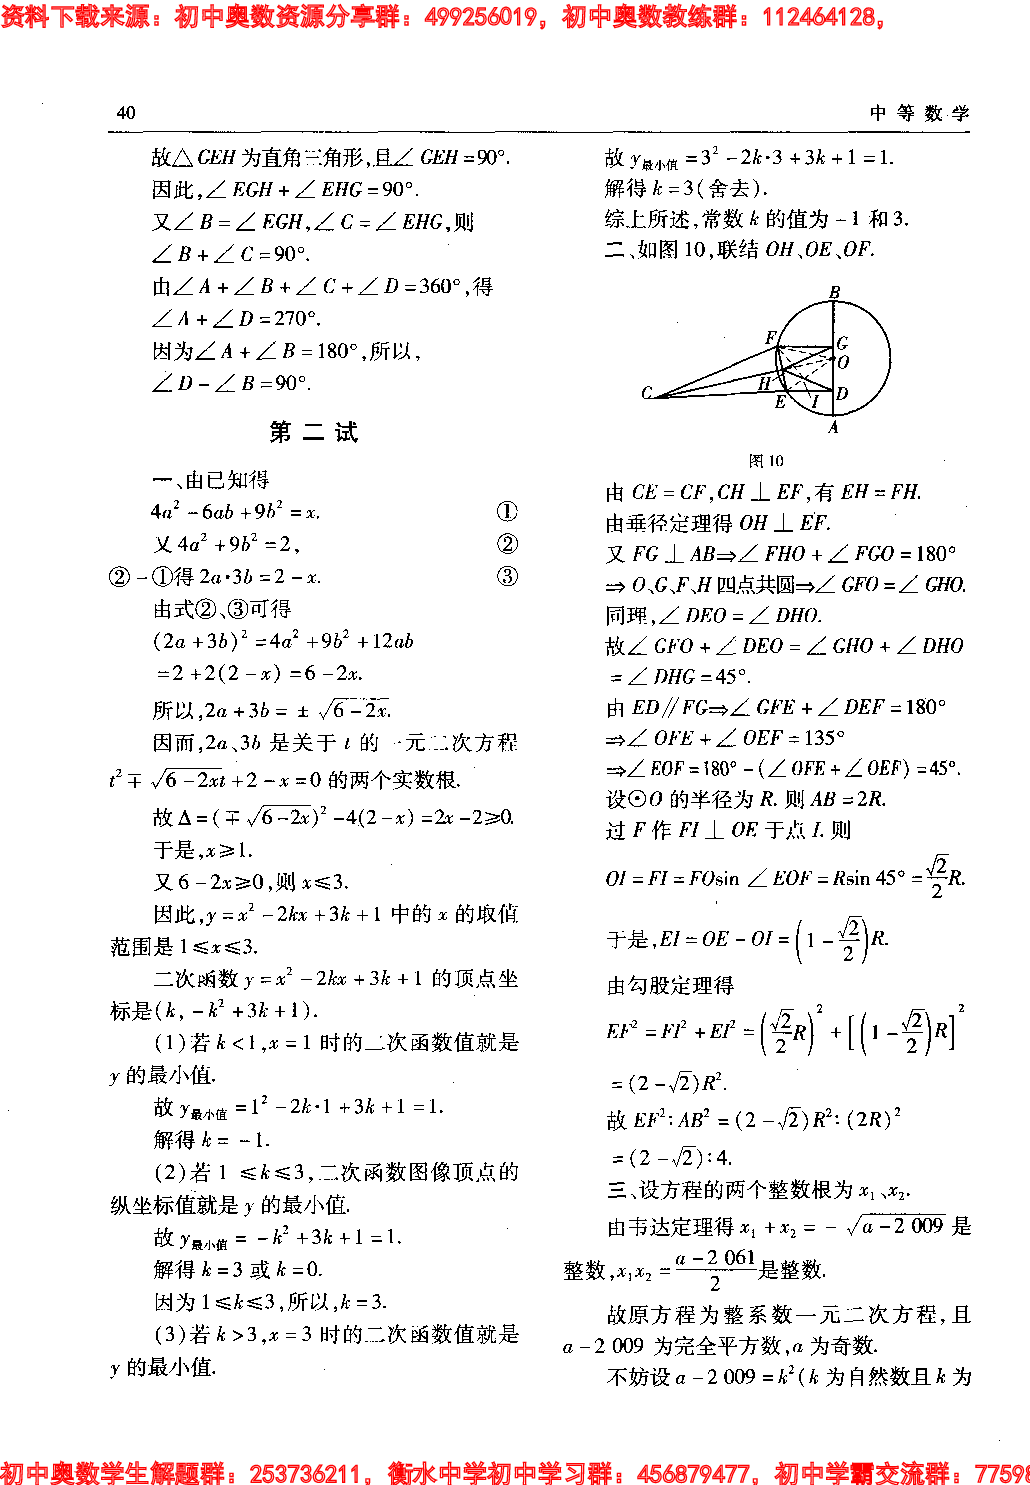 资料下载来源：初中奥数资源分享群：499256019，初中奥数教练群：112464128，
40
中 等 数 学
故△GEH 为直角三角形,且∠GEH=90°.
因此,∠EGH+∠EHG=90°.
又∠B=∠EGH,∠C=∠EHG,则
∠B+∠C=90°.
由∠A+∠B+∠C+∠D=360°,得
∠A+∠D=270°.
因为∠A+∠B=180°,所以,
∠D-∠B=90°.
第 二 试
一、由已知得
4a²-6ab+9b²=x. ①
又 4a²+9b²=2, ②
②-①得 2a·3b=2-x. ③
由式②、③可得
(2a+3b)²=4a²+9b²+12ab
=2+2(2-x)=6-2x.
所以,2a+3b=±√(6-2x).
因而,2a、3b 是关于 t 的一元二次方程
t²∓√(6-2x)t+2-x=0 的两个实数根.
故Δ=(∓√(6-2x))²-4(2-x)=2x-2≥0.
于是,x≥1.
又 6-2x≥0,则 x≤3.
因此,y=x²-2kx+3k+1 中的 x 的取值
范围是 1≤x≤3.
二次函数 y=x²-2kx+3k+1 的顶点坐
标是(k,-k²+3k+1).
(1)若 k<1,x=1 时的二次函数值就是
y 的最小值.
故 y最小值=1²-2k·1+3k+1=1.
解得 k=-1.
(2)若 1≤k≤3,二次函数图像顶点的
纵坐标值就是 y 的最小值.
故 y最小值=-k²+3k+1=1.
解得 k=3 或 k=0.
因为 1≤k≤3,所以,k=3.
(3)若 k>3,x=3 时的二次函数值就是
y 的最小值.
故 y最小值=3²-2k·3+3k+1=1.
解得 k=3(舍去).
综上所述,常数 k 的值为-1 和 3.
二、如图 10,联结 OH、OE、OF.
B
F
G
O
H
C
E
I
D
A
图 10
由 CE=CF,CH⊥EF,有 EH=FH.
由垂径定理得 OH⊥EF.
又 FG⊥AB⇒∠FHO+∠FGO=180°
⇒O、G、F、H 四点共圆⇒∠GFO=∠GHO.
同理,∠DEO=∠DHO.
故∠GFO+∠DEO=∠GHO+∠DHO
=∠DHG=45°.
由 ED∥FG⇒∠GFE+∠DEF=180°
⇒∠OFE+∠OEF=135°
⇒∠EOF=180°-(∠OFE+∠OEF)=45°.
设⊙O 的半径为 R.则 AB=2R.
过 F 作 FI⊥OE 于点 I.则
OI=FI=FOsin∠EOF=Rsin 45°=√2/2 R.
于是,EI=OE-OI=(1-√2/2)R.
由勾股定理得
EF²=FI²+EI²=(√2/2 R)²+[(1-√2/2)R]²
=(2-√2)R².
故 EF²:AB²=(2-√2)R²:(2R)²
=(2-√2):4.
三、设方程的两个整数根为 x₁、x₂.
由韦达定理得 x₁+x₂=-√(a-2 009) 是
整数,x₁x₂=(a-2 061)/2 是整数.
故原方程为整系数一元二次方程,且
a-2 009 为完全平方数,a 为奇数.
不妨设 a-2 009=k²(k 为自然数且 k 为
初中奥数学生解题群：253736211，衡水中学初中学习群：456879477，初中学霸交流群：77598